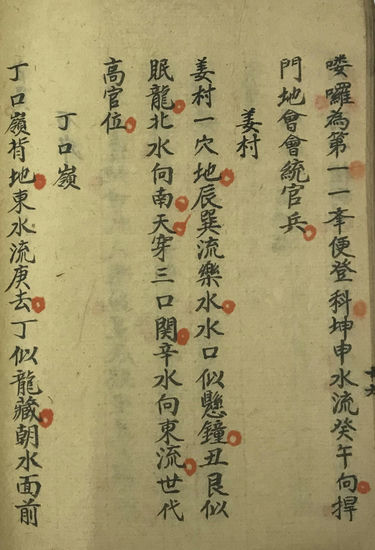 嘍囉為第一一峯便登科坤申水流癸午向捍
門地會會統官兵
姜村
姜村一穴地辰巽流樂水水口似懸鐘丑艮似
眠龍北水向南天穿三口関辛水向東流世代
高官位
丁口嶺
丁口嶺背地東水流庚去丁似龍藏朝水面前